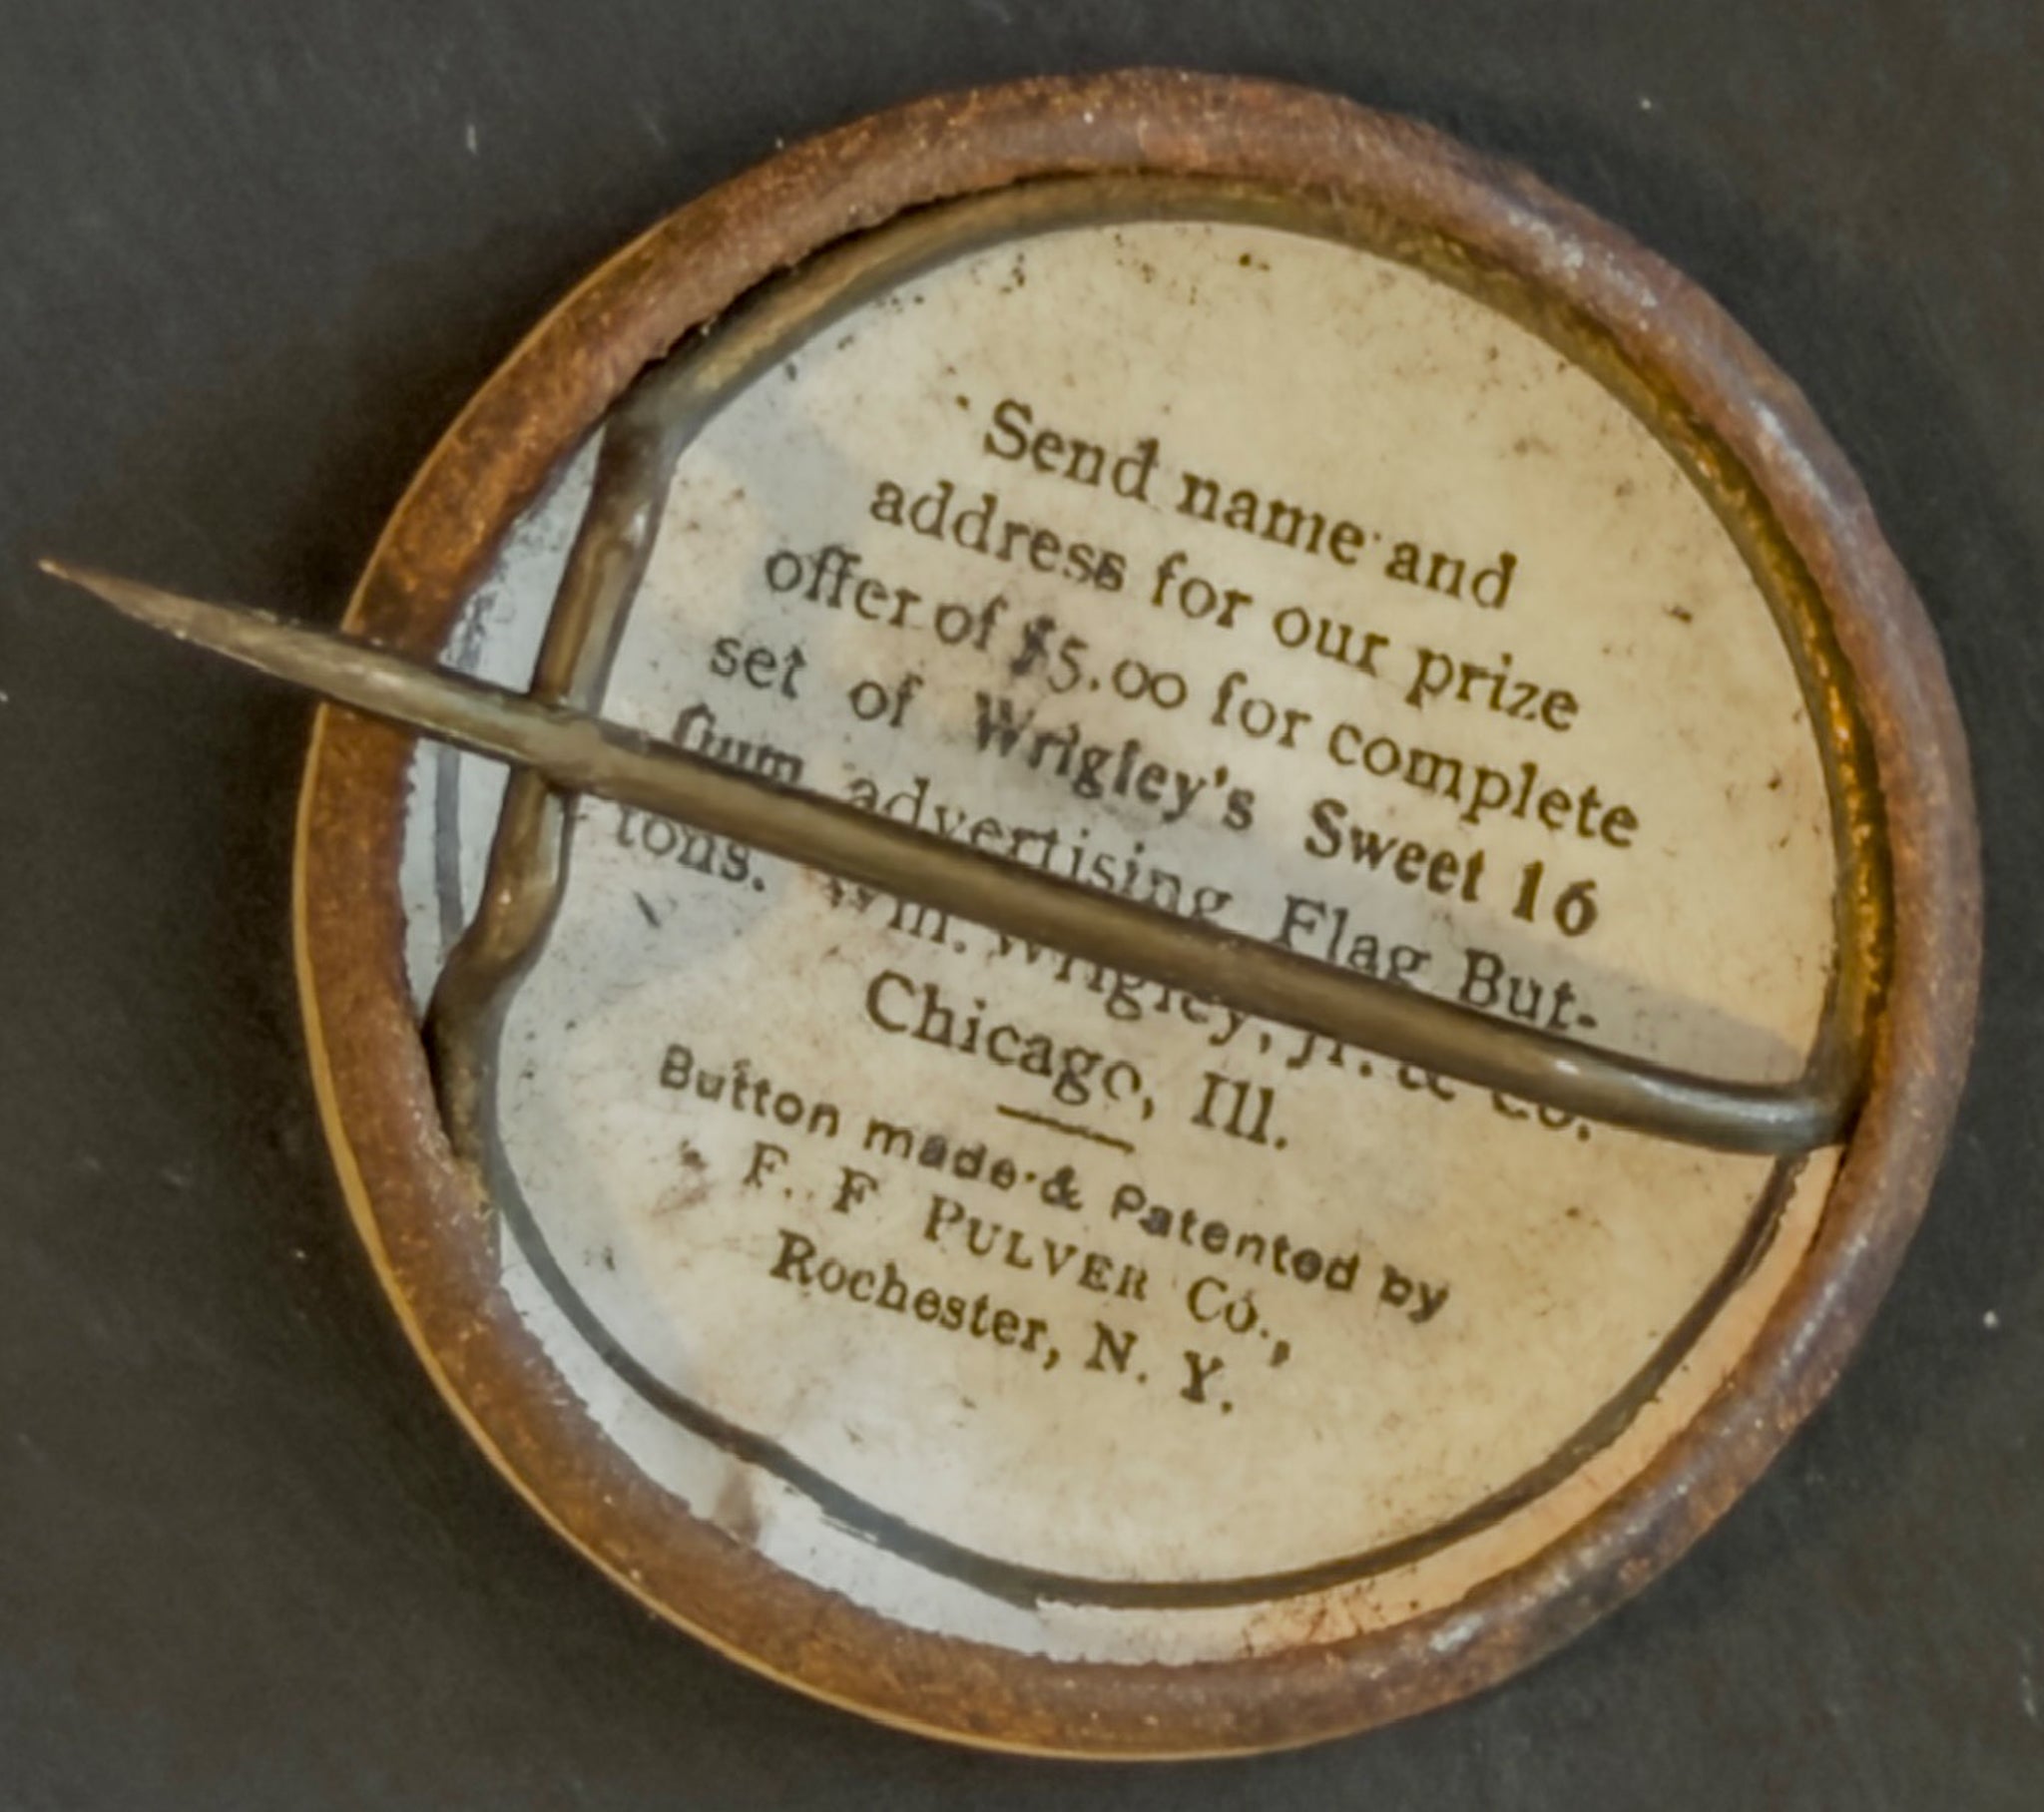 Send name and
address for our prize
offer of $5.00 for complete
set of Wrigley's Sweet 16
Gum advertising Flag But-
tons. Wm. Wrigley, Jr. & Co.
Chicago, Ill.
Button made & Patented by
F. F PULVER CO.,
Rochester, N. Y.